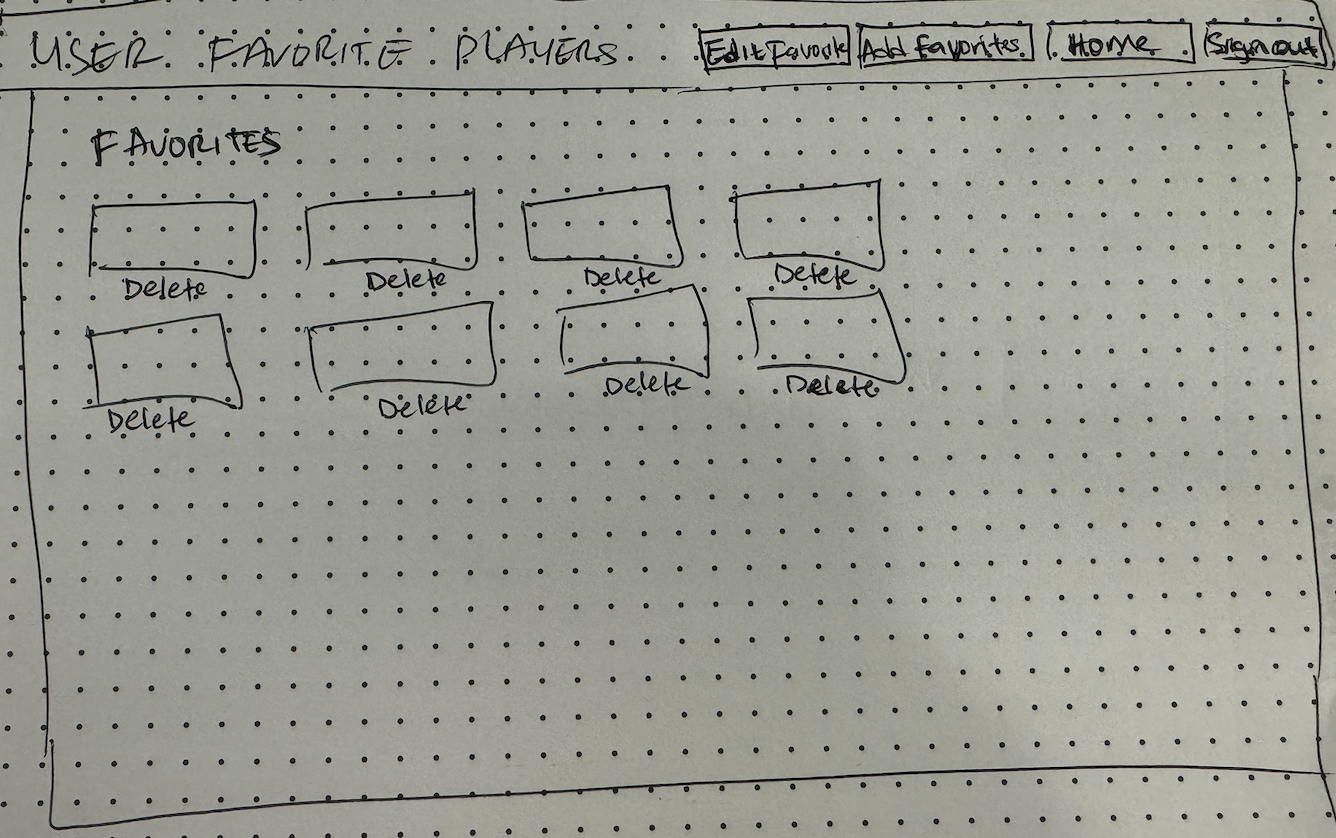 USER FAVORITE PLAYERS Edit Favorite Add Favorites Home Sign out
FAVORITES
Delete Delete Delete Delete
Delete Delete Delete Delete